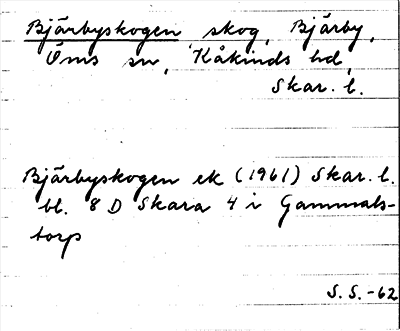 Bjärbyskogen skog, Bjärby,
Öms sn, Kåkinds hd,
Skar. l.
Bjärbyskogen ek (1961) Skar. l.
bl. 8 D Skara 4 i Gammals-
torp
S. S. -62